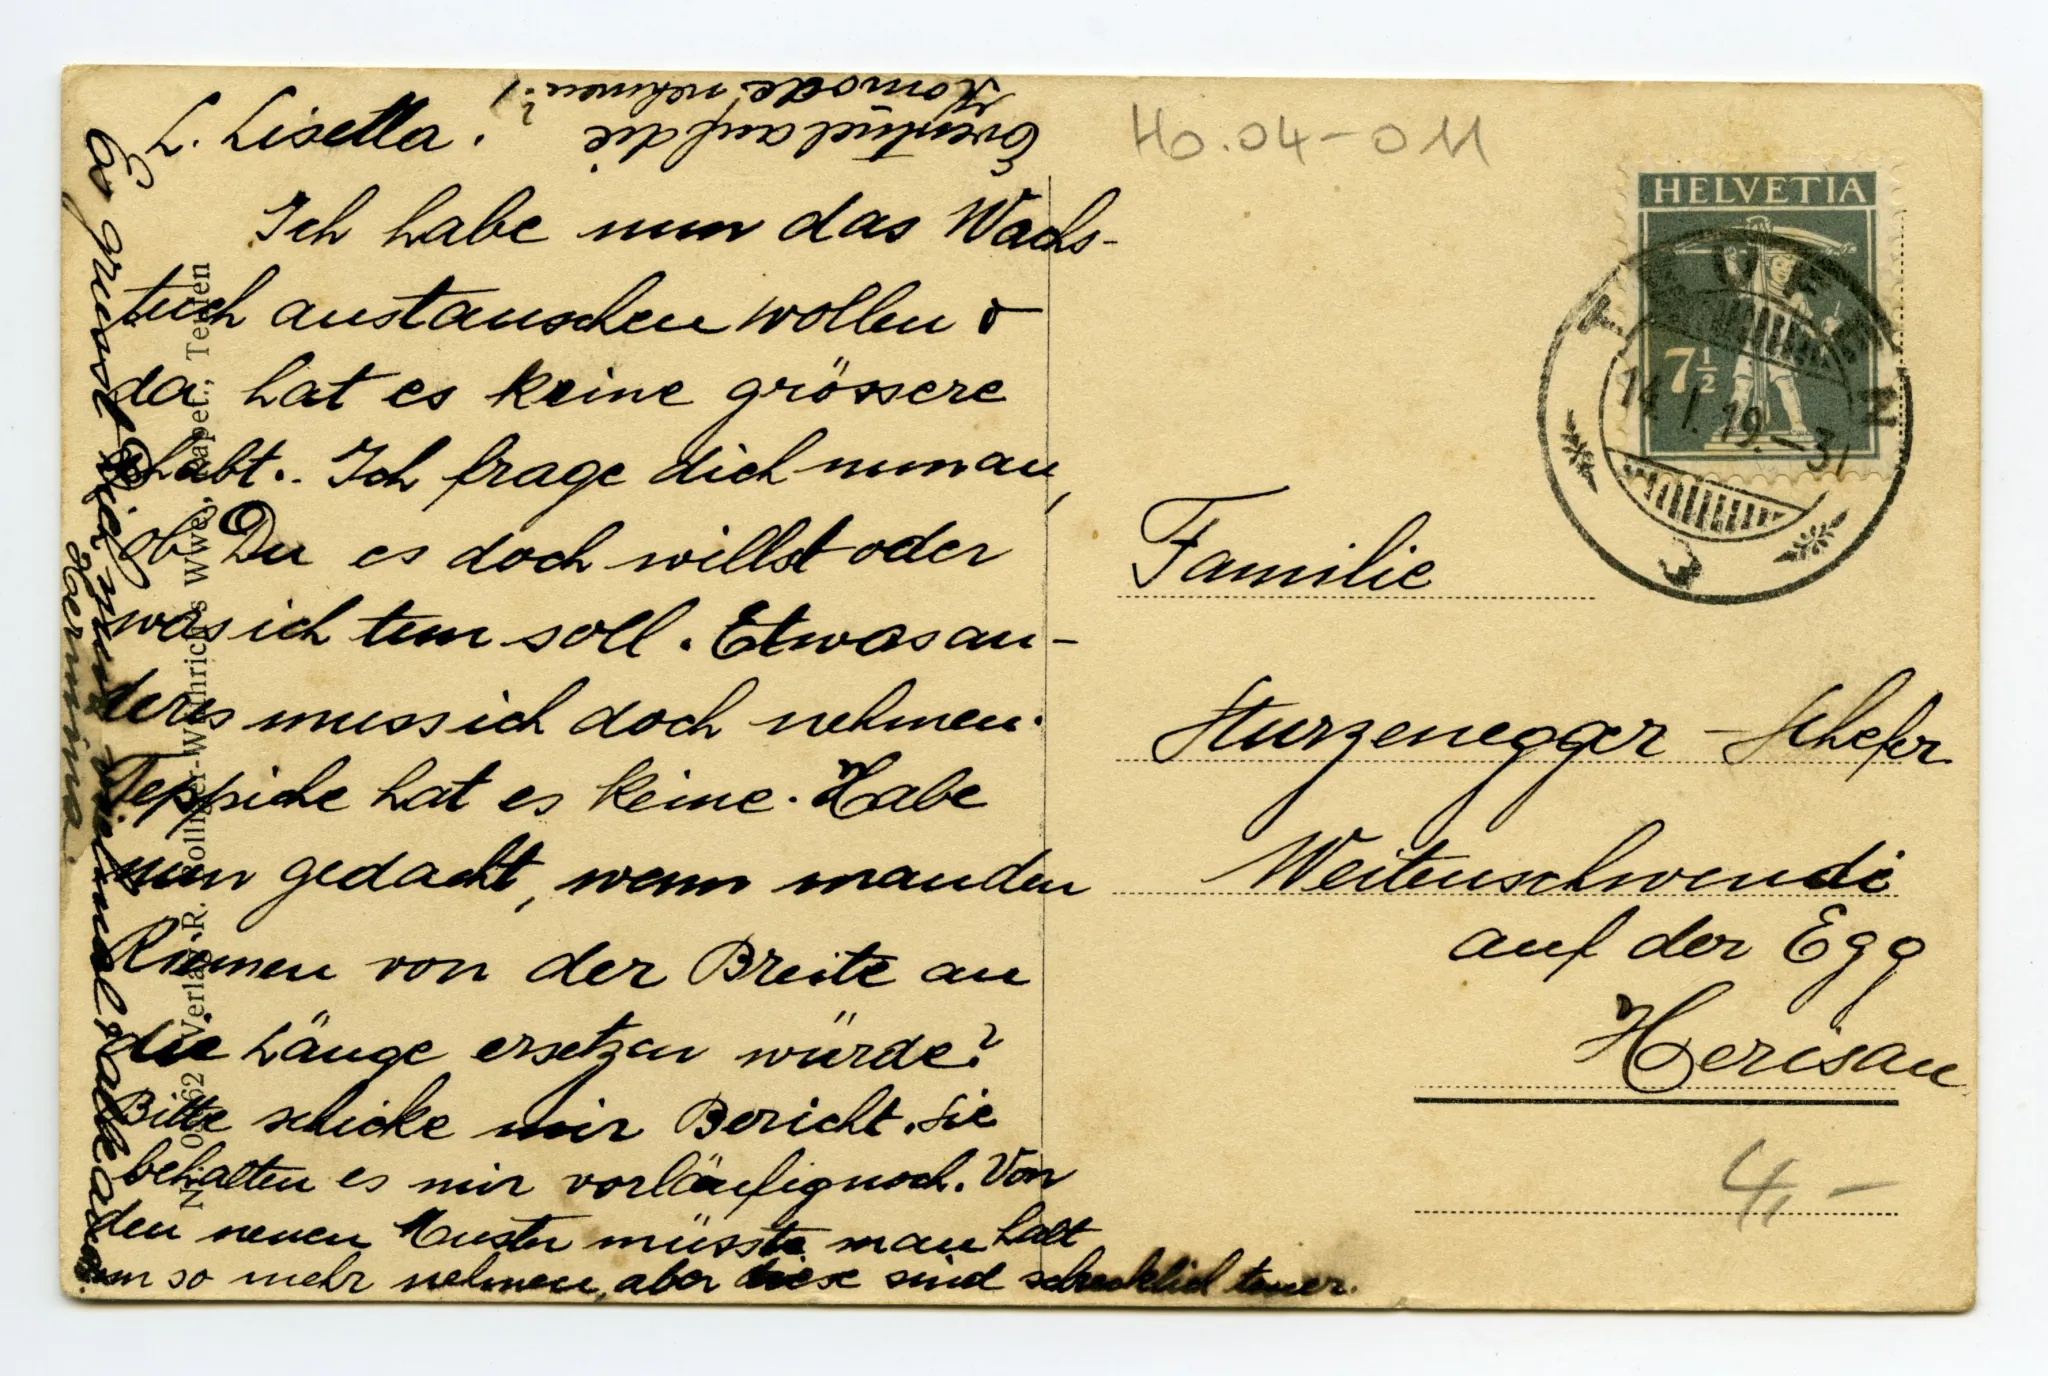 L. Lisetta.
Ich habe nun das Wachs-
tuch austauschen wollen &
da hat es keine grössere
ghabt. Ich frage dich nun an,
ob Du es doch willst oder
was ich tun soll. Etwas an-
deres muss ich doch nehmen.
Teppiche hat es keine. Habe
nun gedacht, wenn man den
Riemen von der Breite an
die Länge ersetzen würde?
Bitte schicke mir Bericht. Sie
behalten es mir vorläufig noch. Von
den neuen Muster müsste man halt
um so mehr nehmen, aber diese sind schrecklich teuer.
Eventuel auf die
Komode nehmen?!
Es grüsst Dich nun vielmal
Hermina.
Verlag R. Zollinger-Wehrich's Wwe., Papet., Teufen
Ho.04-011
HELVETIA
7½
TEUFEN
14.I.19.-31
Familie
Sturzenegger-Schefer
Weitenschwendi
auf der Egg
Herisau
4,-